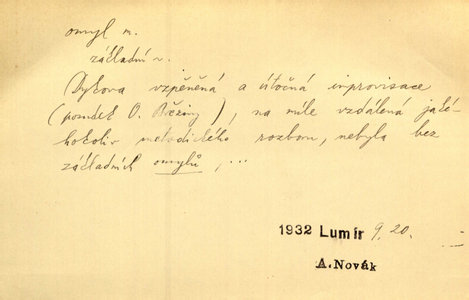 omyl m.
základní o.
Dykova vzpěněná a útočná improvisace
(posudek O. Březiny), na míle vzdálená jaké-
hokoliv metodického rozboru, nebyla bez
základních omylů, ...
1932 Lumír 9, 20.
A. Novák